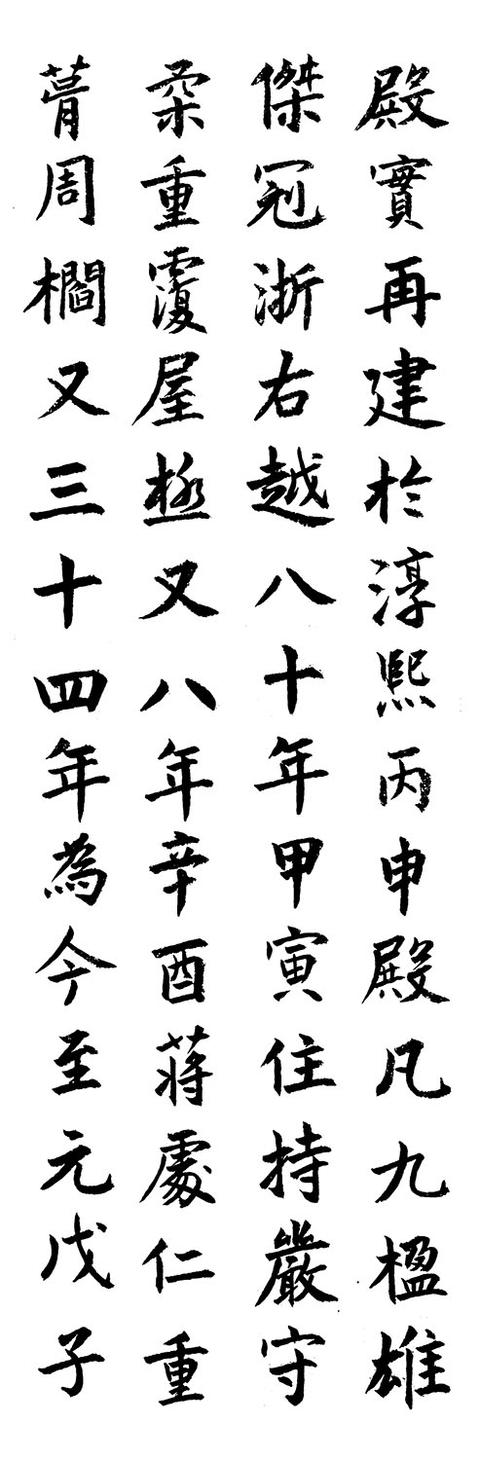 殿實再建於淳熙丙申殿凡九楹雄
傑冠浙右越八十年甲寅住持嚴守
柔重覆屋極又八年辛酉蔣處仁重
葺周櫩又三十四年為今至元戊子